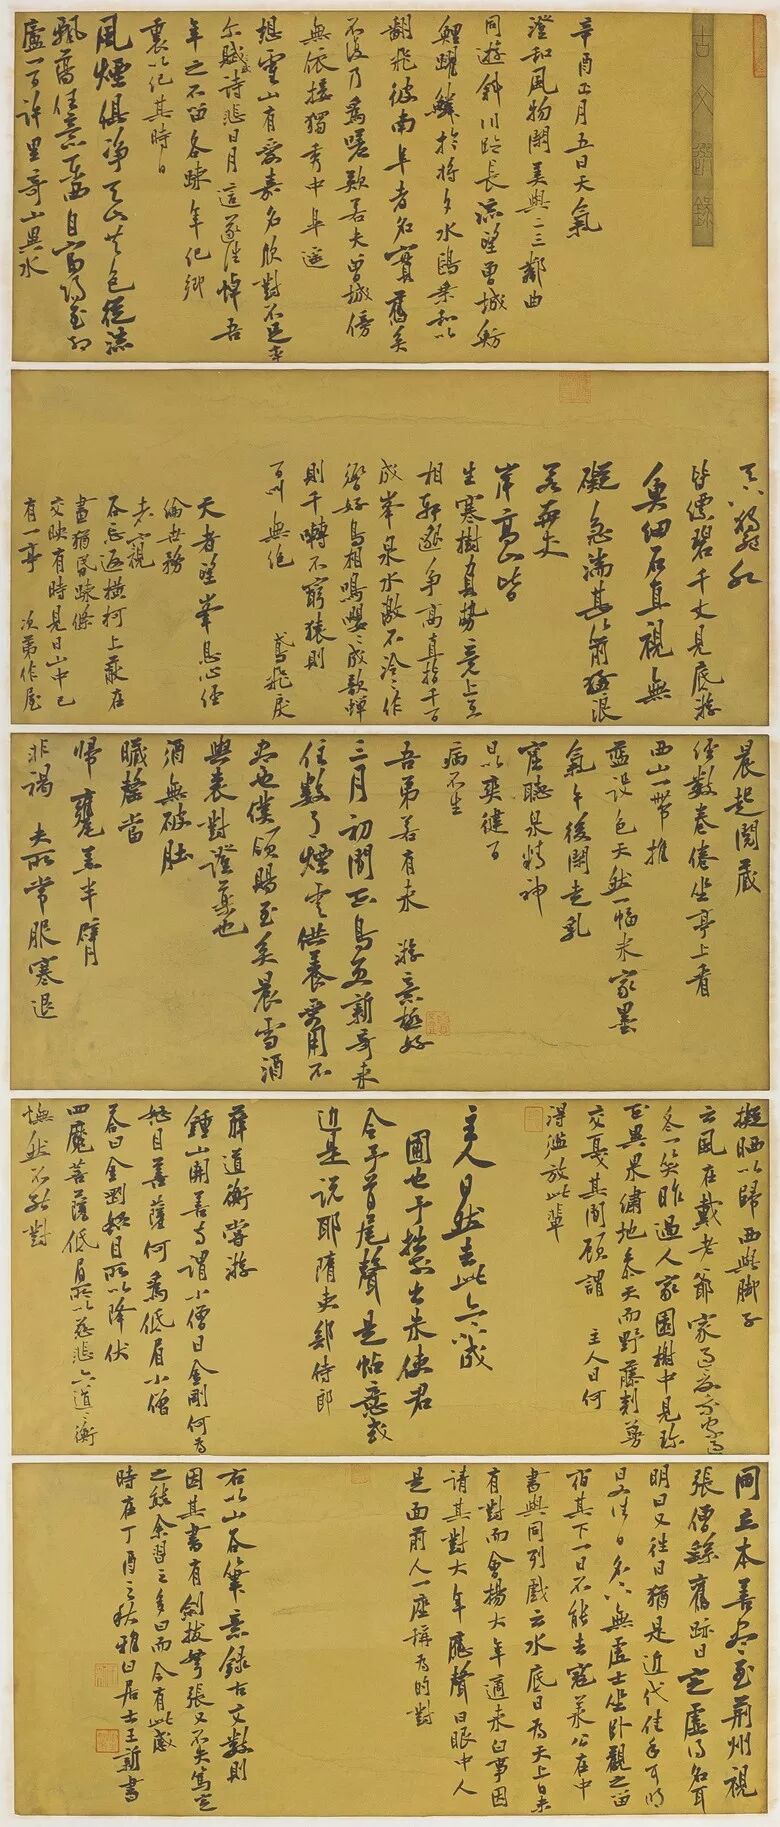 古文選錄
辛酉正月五日天氣
澄和風物閑美與二三鄰曲
同遊斜川臨長流望曾城魴
鯉躍鱗於將夕水鷗乘和以
翻飛彼南阜者名實舊矣
不復乃為嗟歎若夫曾城傍
無依接獨秀中皋遥
想靈山有愛嘉名欣對不足率
爾賦詩悲日月這遂往悼吾
年之不留各疎年紀鄉
裏以紀其時日
風煙俱淨天山共色從流
飄蕩任意東西自富陽至桐
廬一百許里奇山異水
天下獨絕水
皆縹碧千丈見底游
魚細石直視無
礙急湍甚箭猛浪
若奔夾
岸高山皆
生寒樹負勢竞上互
相軒邈爭高直指千百
成峯泉水激石泠泠作
響好鳥相鳴嚶嚶成韻蟬
則千囀不窮猿則
百叫無絕 鳶飛戾
天者望峯息心經
綸世務
者窺
谷忘返橫柯上蔽在
晝猶昏疎條
交映有時見日山中已
有一亭 次第作屋
晨起閱藏
經數卷倦坐亭上看
西山一帶推
藍設色天然一幅米家墨
氣午後閑走乳
窟聽泉精神
日以爽健百
病不生
吾弟若有來 游意極好
三月初間正鳥啼新哥來
住數了煙雲供養受用不
盡也僕頌賜至矣晨雪酒
與裘對證藥也
酒無破肚
臟罄當
歸甕羔半臂
非褐 夫所常服寒退
擬晒以歸 西與腳子
云風在戴老爺家過夜我家
冬一笑昨過人家園榭中見珍
花異果繡地參天而野藤刺蔓
交戛其間顧謂 主人曰何
得濫放此輩
主人曰然去此亦不成
圃也予拙出朱使君
合予首尾聲是帖意或
近是說耶隋吏部侍郎
薛道衡嘗游
鍾山開善寺謂小僧曰金剛何為
怒目菩薩何為低眉小僧
答曰金剛怒目所以降伏
四魔菩薩低眉所以慈悲六道衡
憮然不能對
閻立本善畫至荊州視
張僧繇舊跡曰定虛得名耳
明日又往曰猶是近代佳手耳明
日又往曰名下無虛士坐卧觀之留
宿其下一日不能去寇萊公在中
書與同列戲云水底日為天上日未
有對而會楊大年適來白事因
請其對大年應聲曰眼中人
是面前人一座稱為的對
右以山谷筆意錄古文數則
因其書有劍拔弩張又不失篤定
之態余習之多日而今有此感
時在丁酉之秋雅白居士王新書